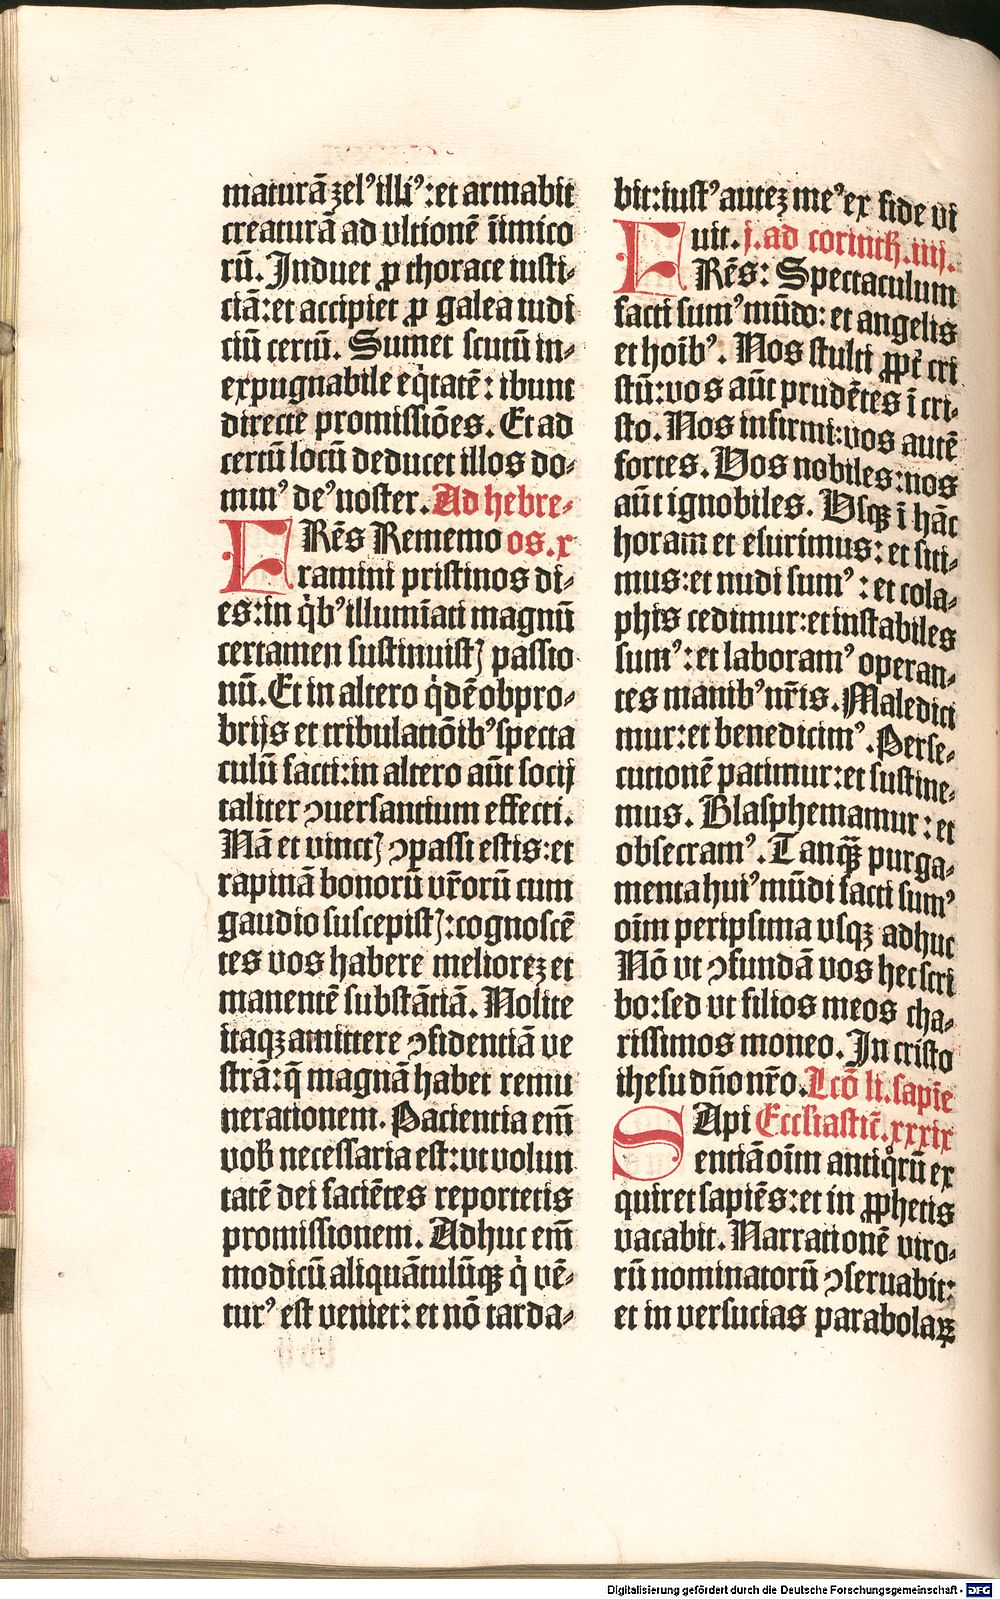 maturā zelꝰ illiꝰ: et armabit
creaturā ad vltionē inimico
rū. Induet ꝓ thorace iusti⸗
ciā: et accipiet ꝓ galea iudi
ciū certū. Sumet scutū in⸗
expugnabile eq̇tatē: ibunt
directe promissiōes. Et ad
certū locū deducet illos do⸗
minꝰ deꝰ noster. Ad hebre⸗
FRēs Rememo os. x
ramini pristinos di⸗
es: in q̇bꝰ illumīati magnū
certamen sustinuistꝭ passio
nū. Et in altero q̇dē obpro⸗
brijs et tribulatiōibꝰ specta
culū facti: in altero aūt socij
taliter ꝯuersantium effecti.
Nā et vinctꝭ ꝯpassi estis: et
rapinā bonorū vr̄orū cum
gaudio suscepistꝭ: cognoscē
tes vos habere meliorez et
manentē substātiā. Nolite
itaqꝫ amittere ꝯfidentiā ve
strā: q̄ magnā habet remu
nerationem. Pacientia em̄
vob̄ necessaria est: vt volun
tatē dei faciētes reportetis
promissionem. Adhuc em̄
modicū aliquātulūqꝫ q̇ vē⸗
turꝰ est veniet: et nō tarda⸗
bit: iustꝰ autez meꝰ ex fide vi
uit. j. ad corinth. iiij.
FRēs: Spectaculum
facti sumꝰ mūdo: et angelis
et hoībꝰ. Nos stulti ꝓpt̄ cri
stū: vos aūt prudētes ī cri⸗
sto. Nos infirmi: vos autē
fortes. Vos nobiles: nos
aūt ignobiles. Vsqꝫ ī hāc
horam et esurimus: et siti⸗
mus: et nudi sumꝰ: et cola⸗
phis cedimur: et instabiles
sumꝰ: et laboramꝰ operan⸗
tes manibꝰ nr̄is. Maledici
mur: et benedicimꝰ. Perse⸗
cutionē patimur: et sustine⸗
mus. Blasphemamur: et
obsecramꝰ. Tanqꝫ̄ purga⸗
menta huiꝰ mūdi facti sumꝰ
oīm peripsima vsqꝫ adhuc
Nō vt ꝯfundā vos hec scri
bo: sed vt filios meos cha⸗
rissimos moneo. In cristo
ihesu dn̄o nr̄o. Lcō li. sapīe
SApi Eccl̄iastic̄. xxxix
entiā oīm antiq̊rū ex
quiret sapiēs: et in ꝓphetis
vacabit. Narrationē viro⸗
rū nominatorū ꝯseruabit:
et in versucias parabolaꝝ
Digitalisierung gefördert durch die Deutsche Forschungsgemeinschaft - DFG